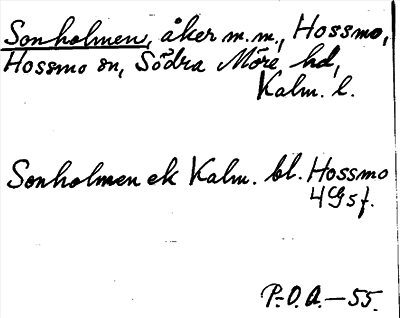 Sonholmen, åker m.m., Hossmo,
Hossmo sn, Södra Möre hd,
Kalm. l.
Sonholmen ek Kalm. bl. Hossmo
4G5f.
P.O.A.—55.